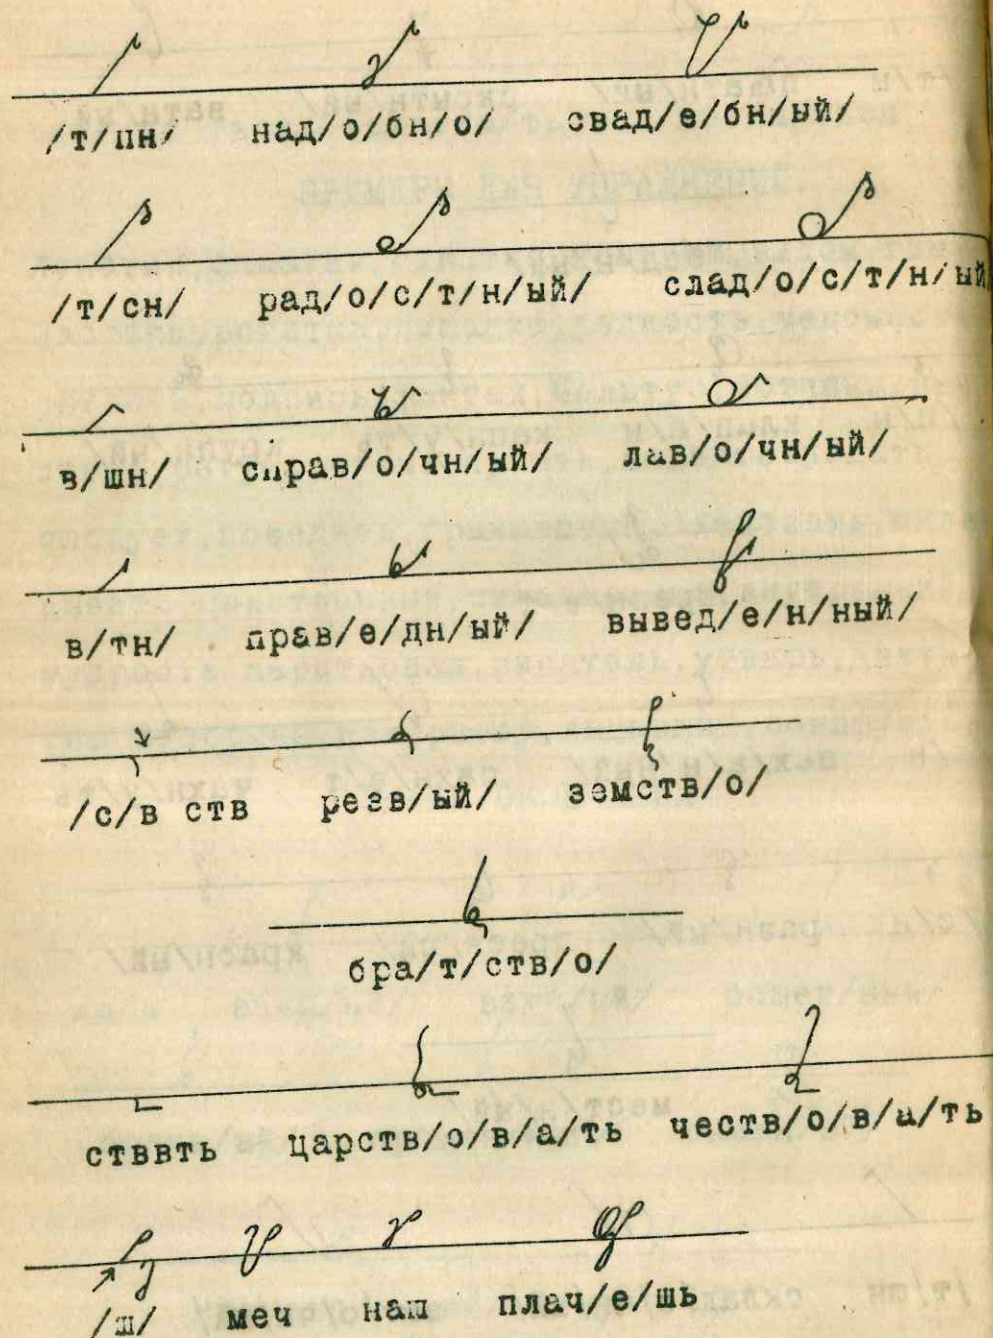 /т/пн/ над/о/бн/о/ свад/е/бн/ый/
/т/сн/ рад/о/с/т/н/ый/ слад/о/с/т/н/ый
в/шн/ справ/о/чн/ый/ лав/о/чн/ый/
в/тн/ прав/е/дн/ый/ вывед/е/н/ный/
/с/в ств резв/ый/ земств/о/
бра/т/ств/о/
стввть царств/о/в/а/ть честв/о/в/а/ть
/ш/ меч наш плач/е/шь